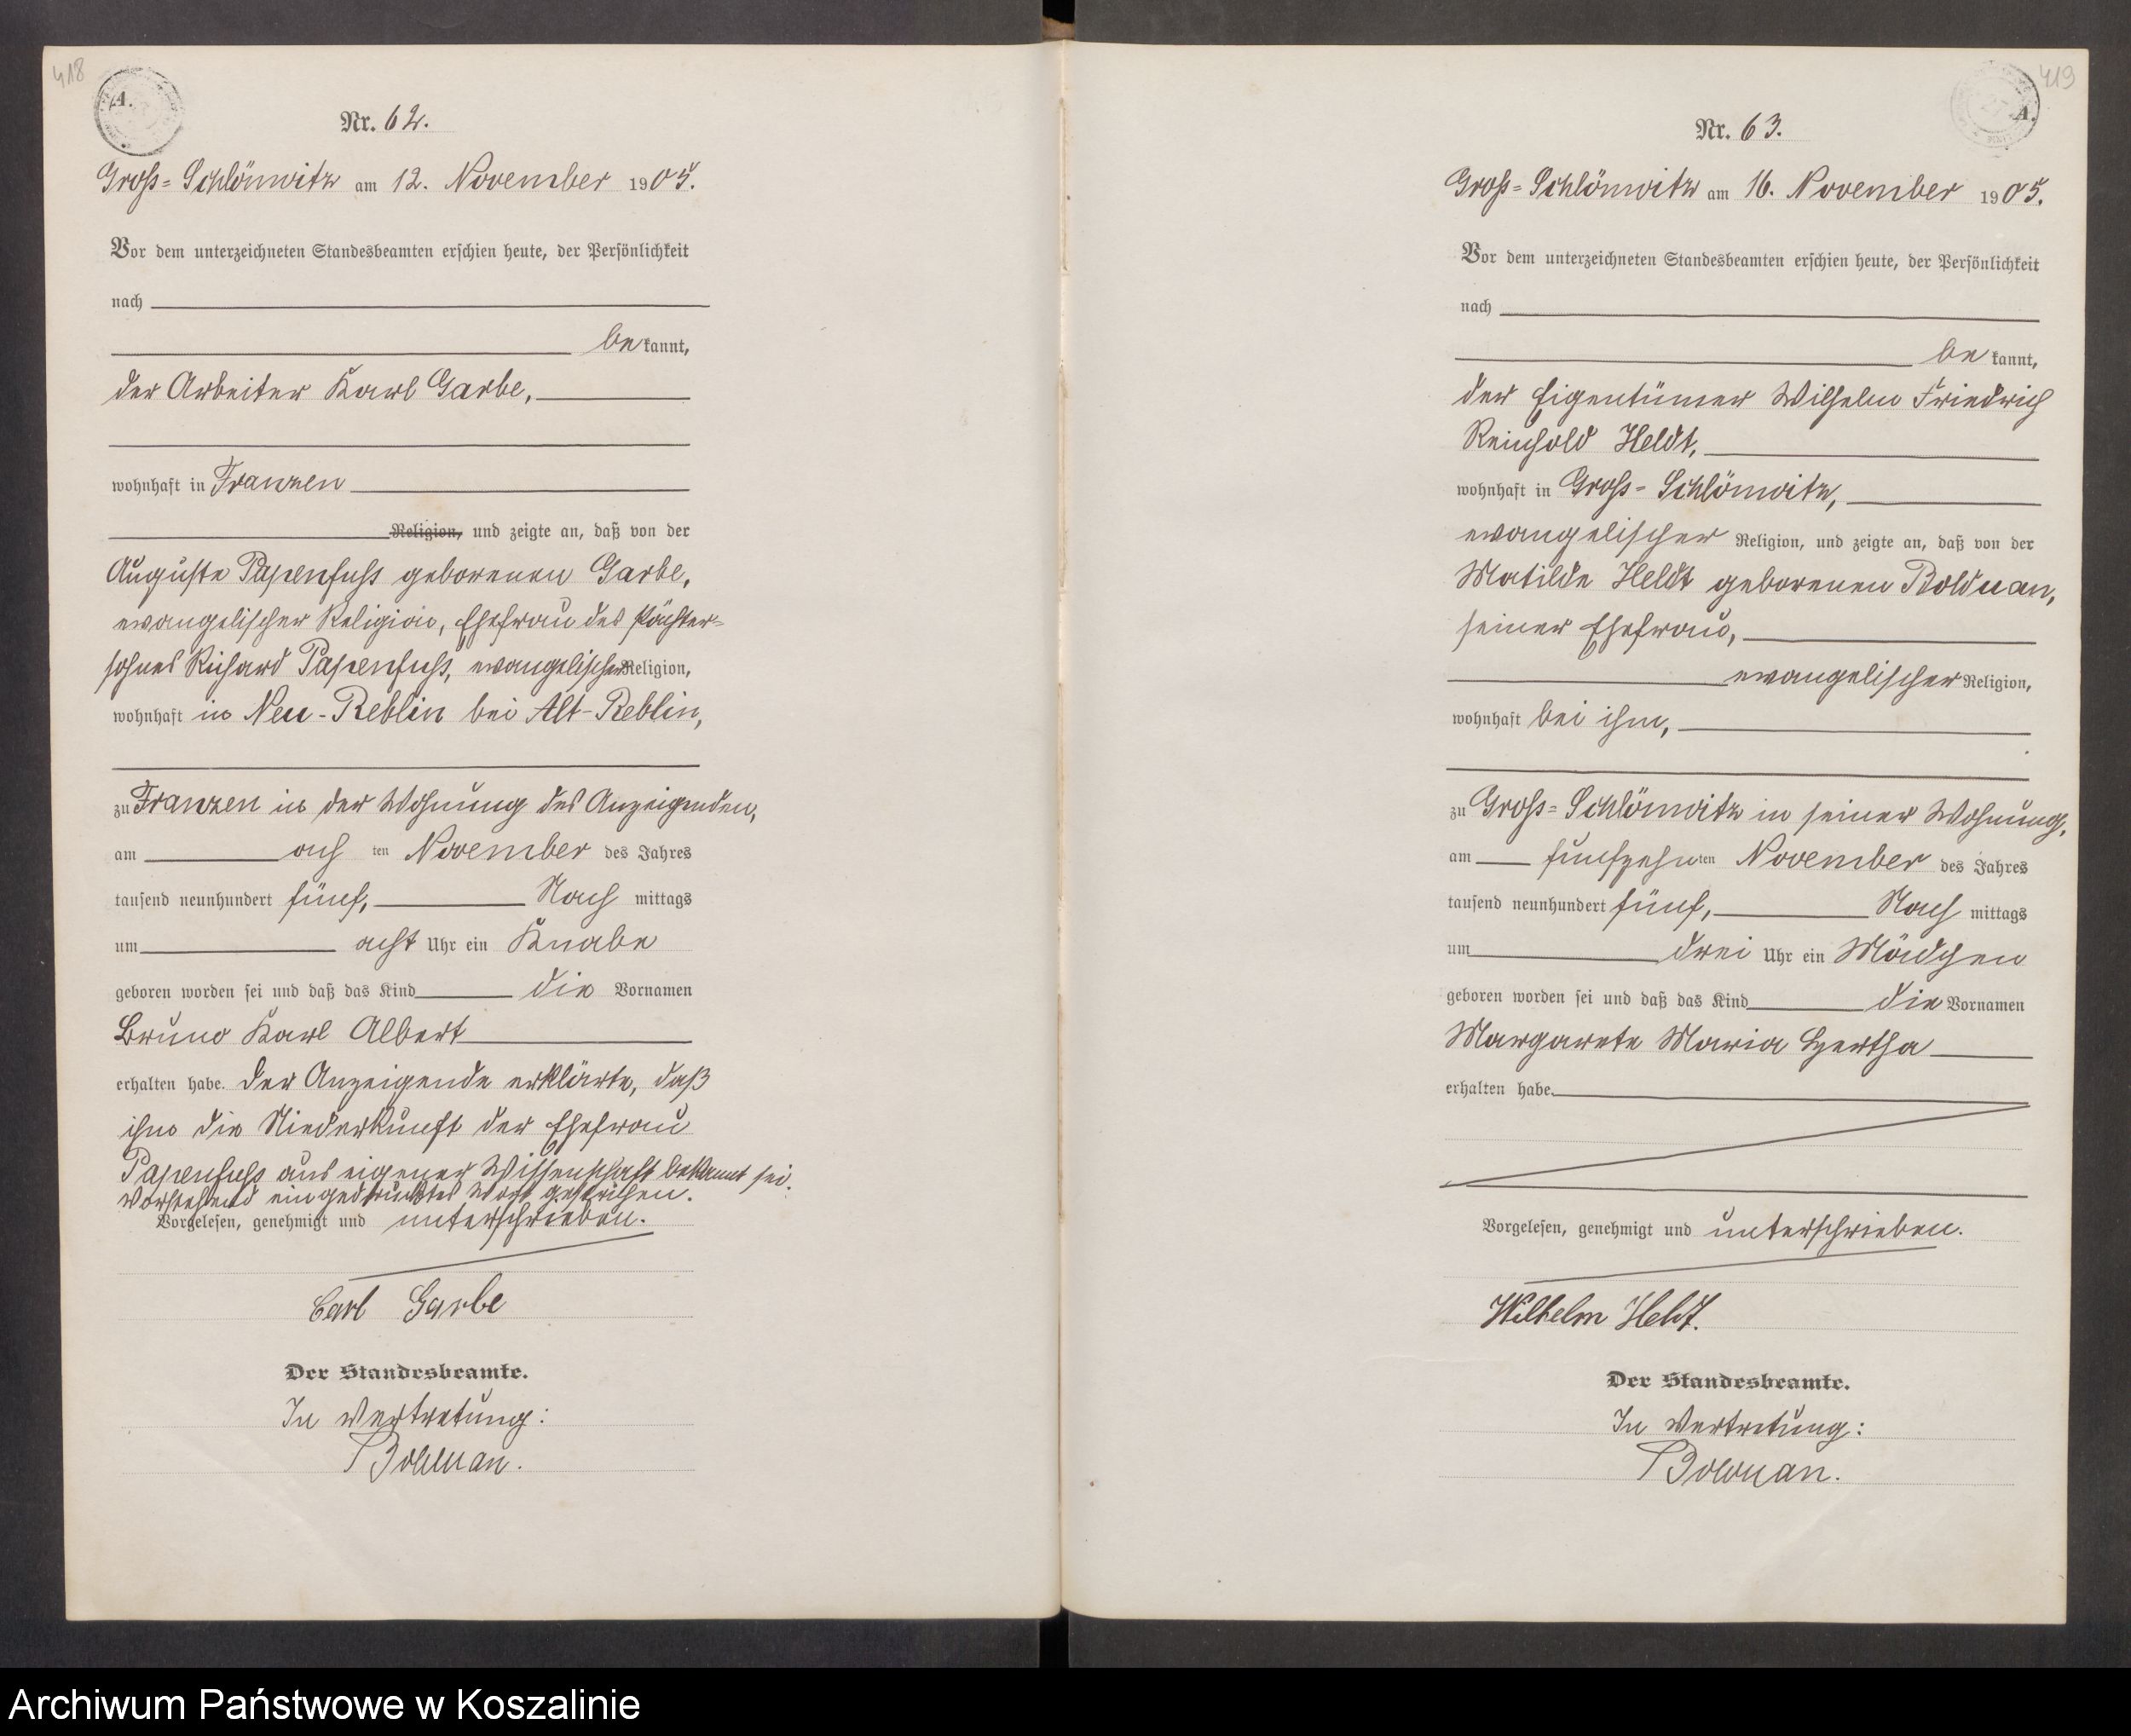 418
A.
Nr. 62.
Gross-Schlönwitz am 12. November 1905.
Vor dem unterzeichneten Standesbeamten erschien heute, der Persönlichkeit
nach
be kannt,
der Arbeiter Karl Garbe,
wohnhaft in Franzen
Religion, und zeigte an, daß von der
Auguste Papenfuss geborenen Garbe,
evangelischer Religion, Ehefrau des Pächter-
sohnes Richard Papenfuss, evangelischer Religion,
wohnhaft in Neu-Reblin bei Alt-Reblin,
zu Franzen in der Wohnung des Anzeigenden,
am ach ten November des Jahres
tausend neunhundert fünf, Nach mittags
um acht Uhr ein Knabe
geboren worden sei und daß das Kind die Vornamen
Bruno Karl Albert
erhalten habe. Der Anzeigende erklärte, daß
ihm die Niederkunft der Ehefrau
Papenfuss aus eigener Wissenschaft bekannt sei.
Vorstehend ein gedrucktes Wort gestrichen.
Vorgelesen, genehmigt und unterschrieben.
Carl Garbe
Der Standesbeamte.
In Vertretung:
Bolduan.
419
A.
Nr. 63.
Gross-Schlönwitz am 16. November 1905.
Vor dem unterzeichneten Standesbeamten erschien heute, der Persönlichkeit
nach
be kannt,
der Eigentümer Wilhelm Friedrich
Reinhold Heldt,
wohnhaft in Gross-Schlönwitz,
evangelischer Religion, und zeigte an, daß von der
Matilde Heldt geborenen Bolduan,
seiner Ehefrau,
evangelischer Religion,
wohnhaft bei ihm,
zu Gross-Schlönwitz in seiner Wohnung,
am fünfzehn ten November des Jahres
tausend neunhundert fünf, Nach mittags
um drei Uhr ein Mädchen
geboren worden sei und daß das Kind die Vornamen
Margarete Maria Hertha
erhalten habe.
Vorgelesen, genehmigt und unterschrieben.
Wilhelm Heldt.
Der Standesbeamte.
In Vertretung:
Bolduan.
Archiwum Państwowe w Koszalinie